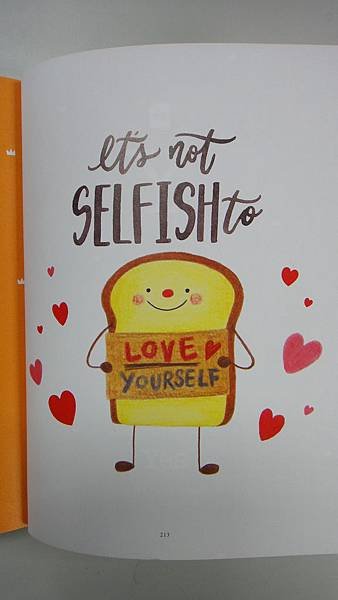 let's not
SELFISH to
LOVE
YOURSELF
213